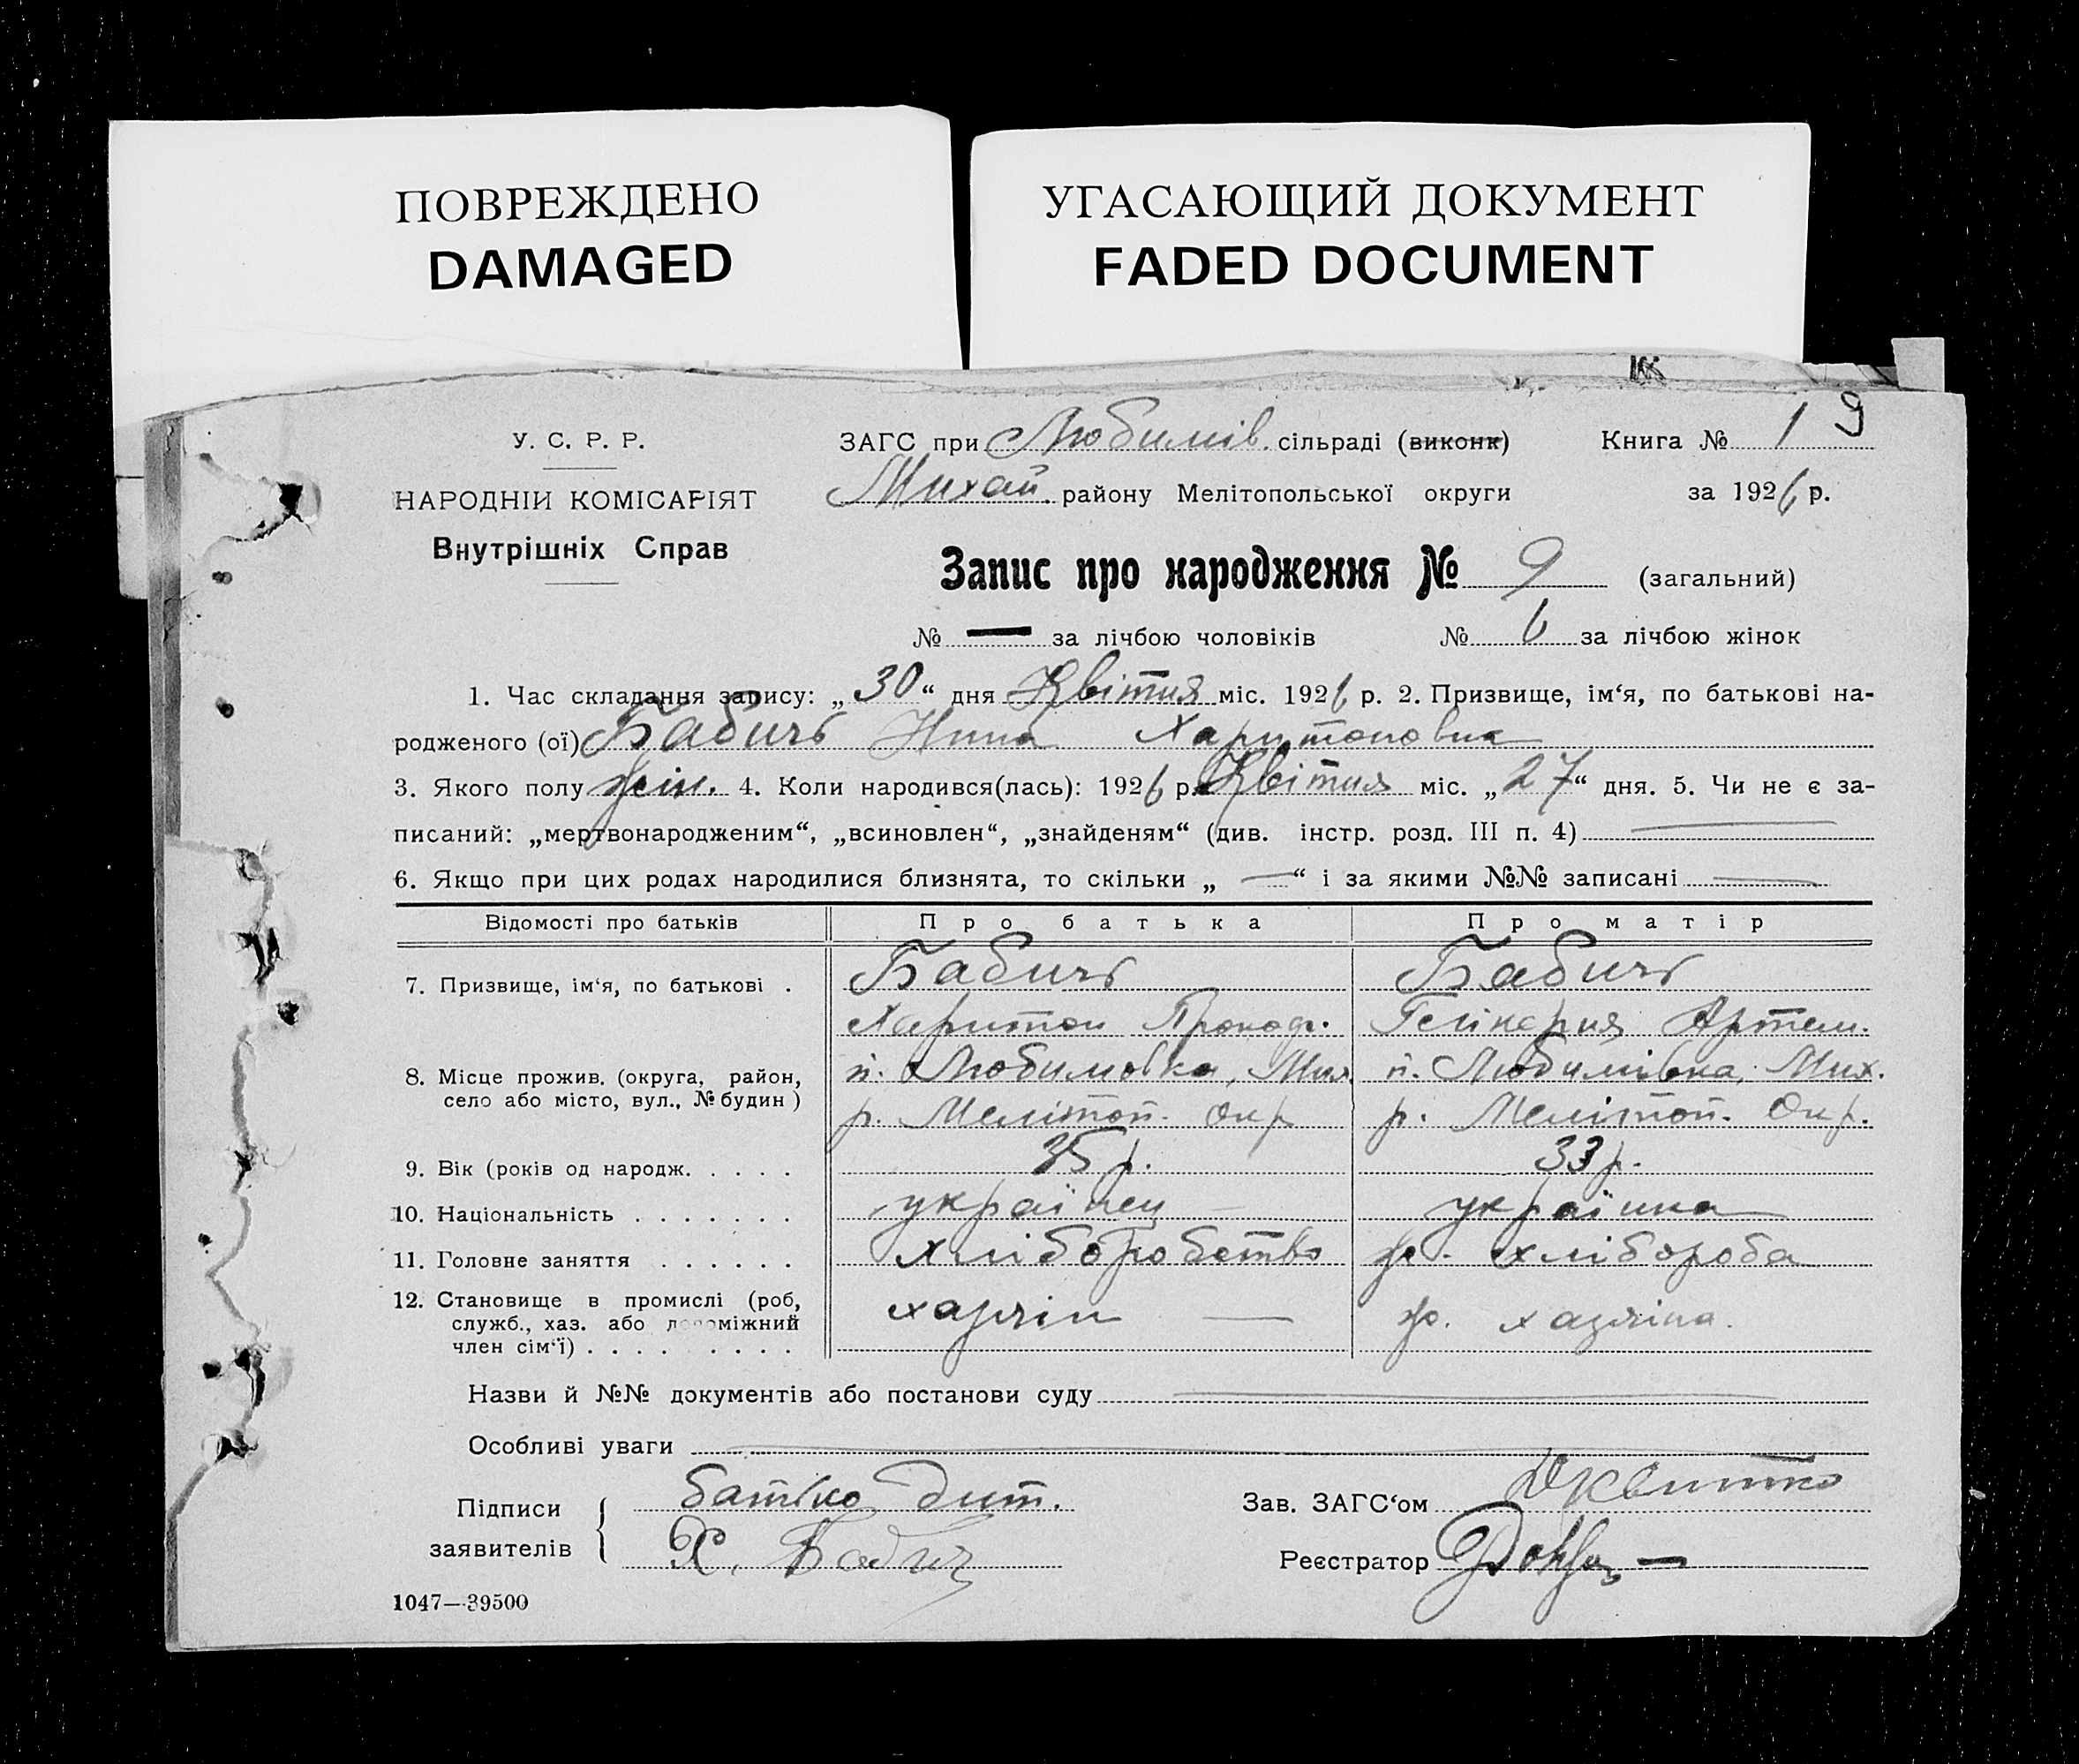 ПОВРЕЖДЕНО
DAMAGED
УГАСАЮЩИЙ ДОКУМЕНТ
FADED DOCUMENT
У. С. Р. Р.
НАРОДНІЙ КОМІСАРІЯТ
Внутрішніх Справ
ЗАГС при Любимів. сільраді (виконк)
Книга № 1 9
Михай. району Мелітопольської округи
за 1926 р.
Запис про народження № 9 (загальний)
№ — за лічбою чоловіків № 6 за лічбою жінок
1. Час складання запису: „30“ дня Квітня міс. 1926 р. 2. Призвище, ім‘я, по батькові на-
родженого (ої) Бабичъ Нина Харитоновна
3. Якого полу жін. 4. Коли народився(лась): 1926 р. Квітня міс. „27“ дня. 5. Чи не є за-
писаний: „мертвонародженим“, „всиновлен“, „знайденям“ (див. інстр. розд. III п. 4) —
6. Якщо при цих родах народилися близнята, то скільки „—“ і за якими №№ записані —
Відомості про батьків Про батька Про матір
7. Призвище, ім‘я, по батькові . Бабичъ Бабичъ
Харитон Прокоф. Артем.
8. Місце прожив. (округа, район, п. Любимовка, Мих. п. Любимівка, Мих.
село або місто, вул., № будин) р. Мелітоп. Окр р. Мелітоп. Окр.
9. Вік (років од народж. . . . . 35 р. 33 р.
10. Національність . . . . . . . українец — українка
11. Головне заняття . . . . . . хліборобство ж. хлібороба
12. Становище в промислі (роб, хазяін — ж. хазяіна.
служб., хаз. або допоміжний
член сім‘ї) . . . . . . . .
Назви й №№ документів або постанови суду —
Особливі уваги —
Підписи батько дит.
заявителів Х. Бабич
Зав. ЗАГС‘ом Квитко
Реєстратор
1047—39500